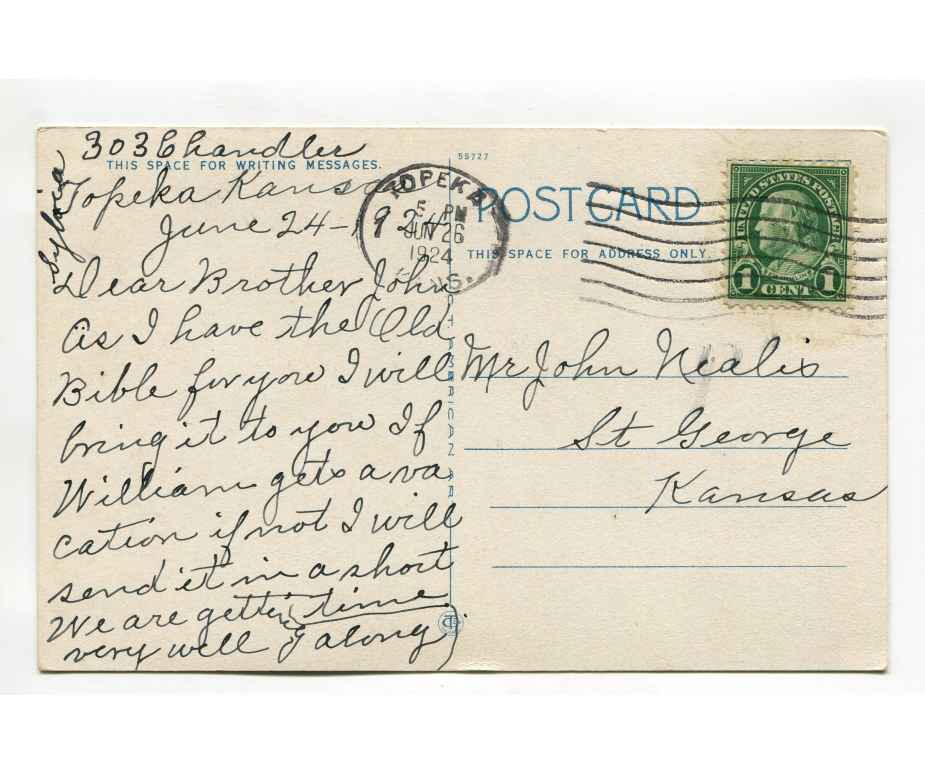 303 Chandler
THIS SPACE FOR WRITING MESSAGES.
Topeka Kansa
June 24-1924
Sylvia
Dear Brother John
As I have the Old
Bible for you I will
bring it to you If
William gets a va
cation if not I will
send it in a short
time
We are getting
very well along
55727
TOPEKA
5 PM
JUN 26
1924
POST CARD
THIS SPACE FOR ADDRESS ONLY.
UNITED STATES POSTAGE
1 CENT 1
Mr John Nealis
St George
Kansas
AMERICAN ART